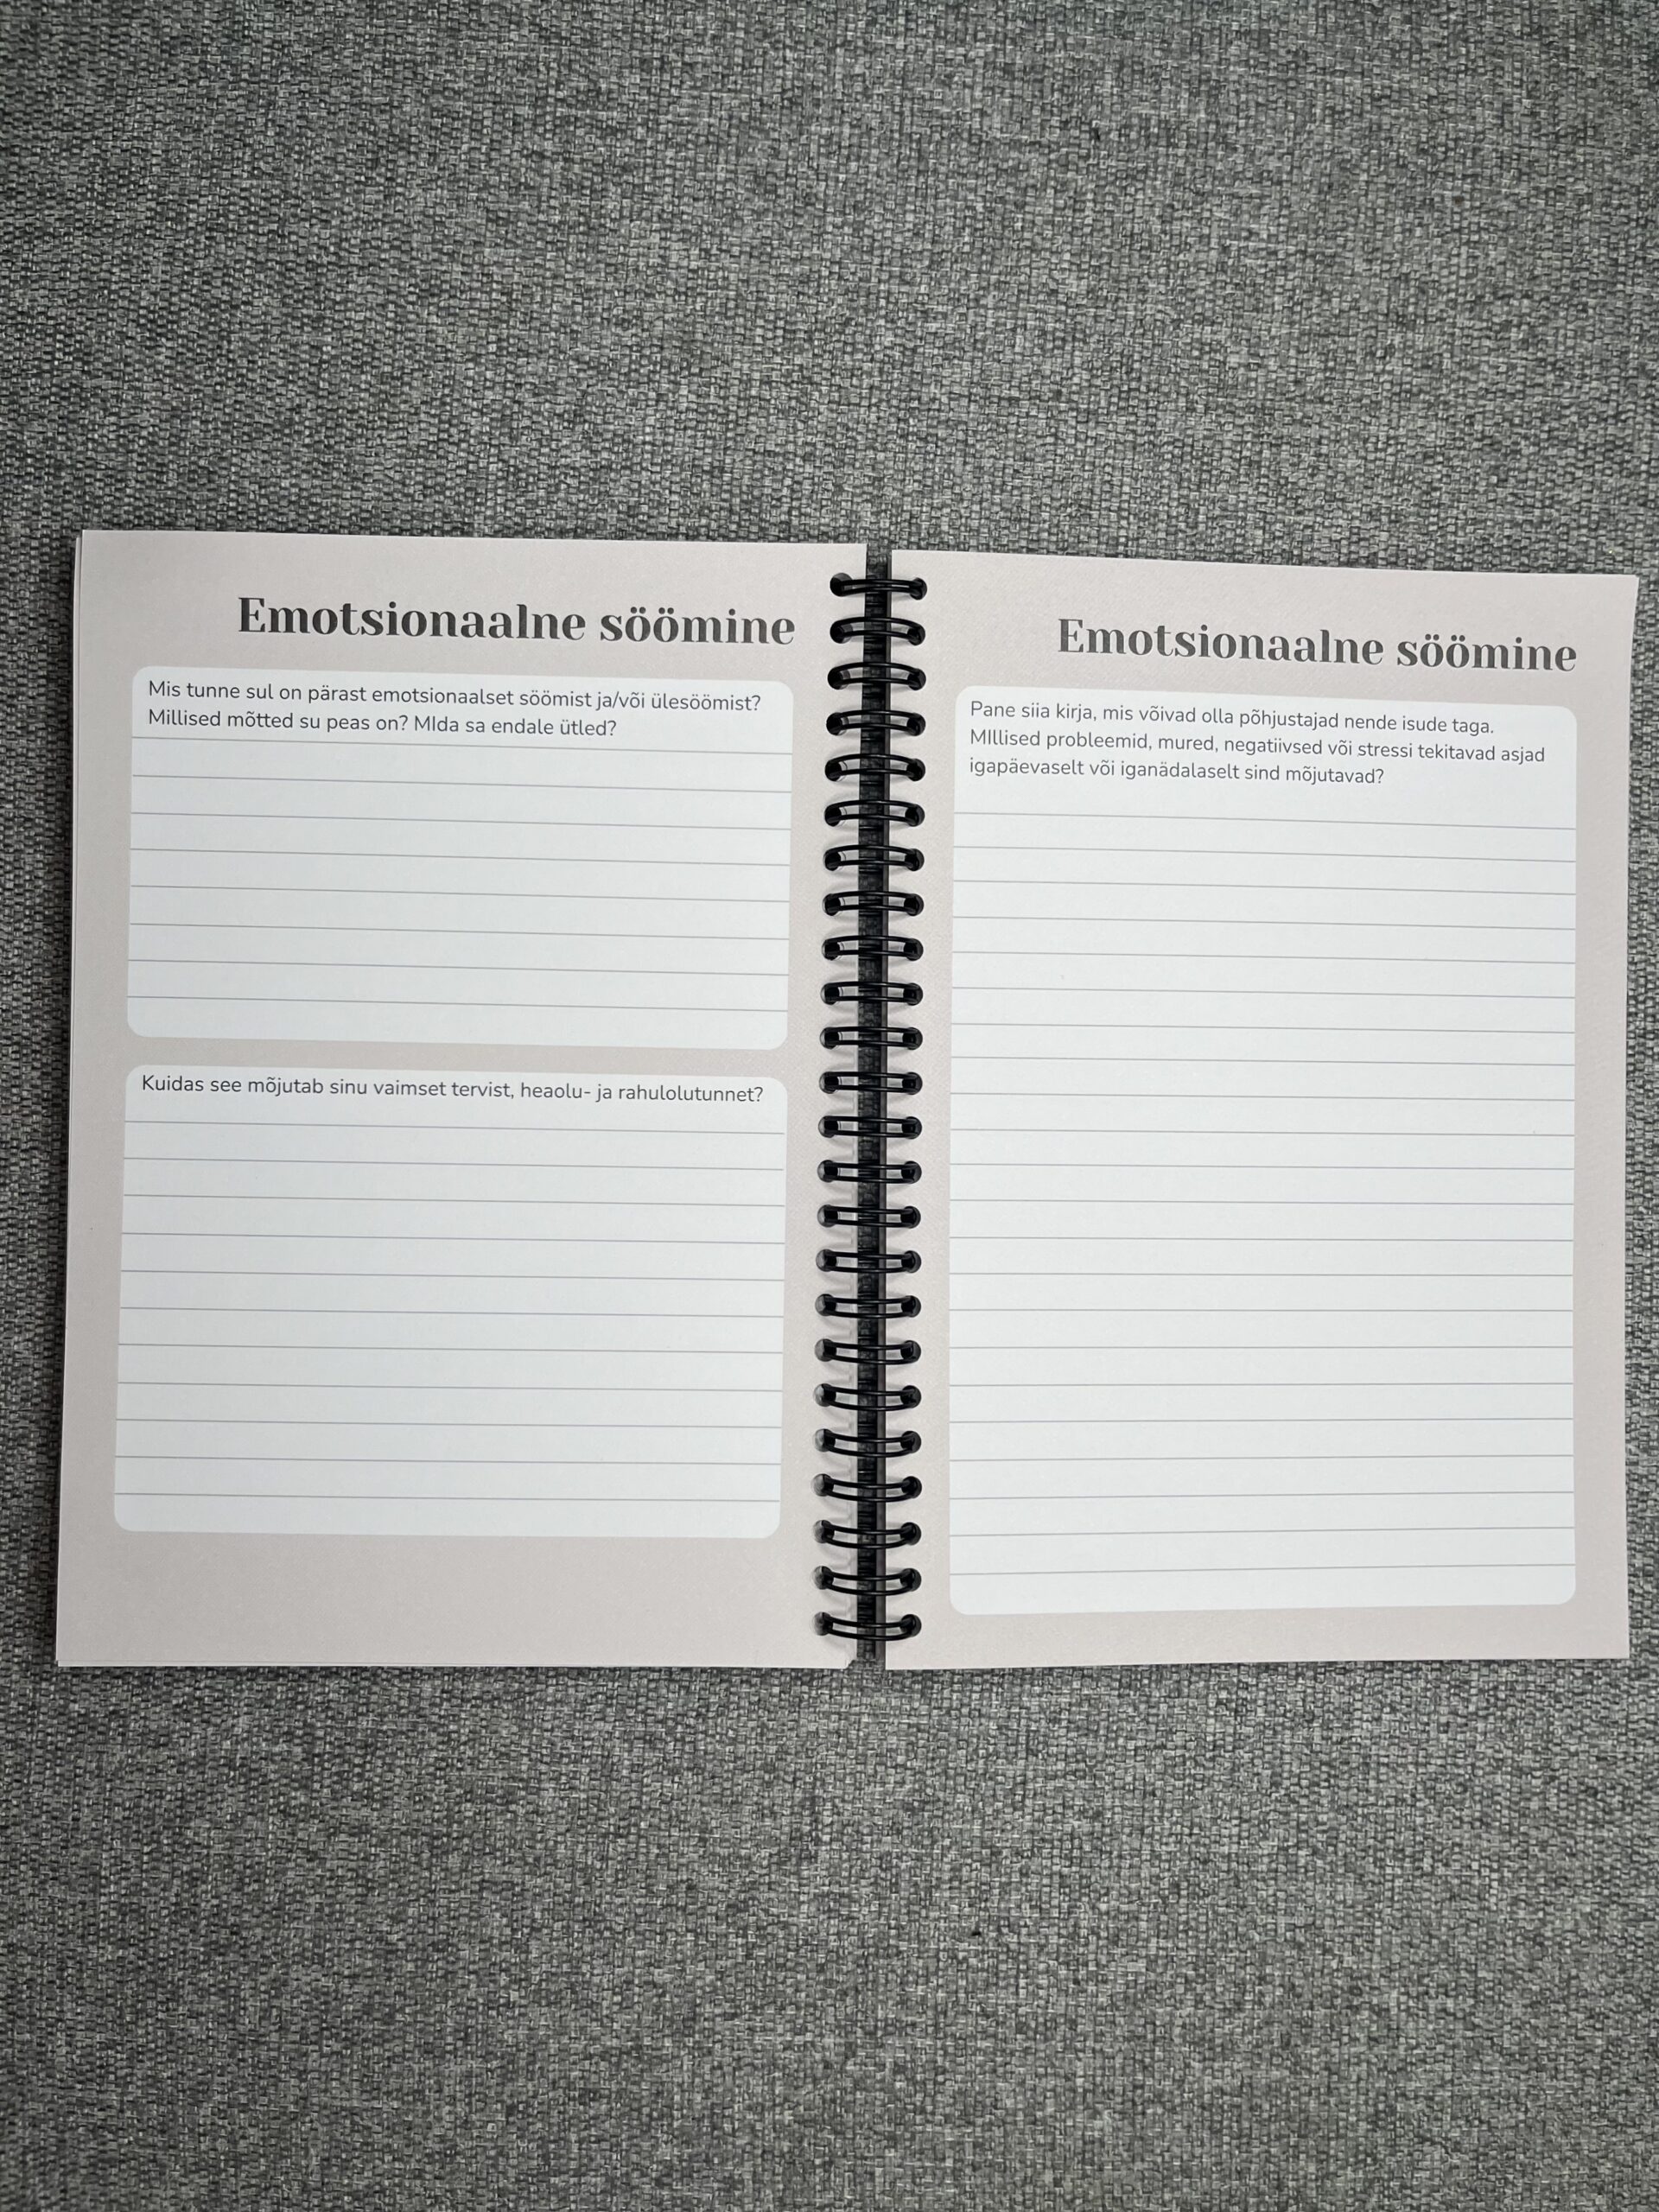 Emotsionaalne söömine
Mis tunne sul on pärast emotsionaalset söömist ja/või ülesöömist?
Millised mõtted su peas on? MIda sa endale ütled?
Kuidas see mõjutab sinu vaimset tervist, heaolu- ja rahulolutunnet?
Emotsionaalne söömine
Pane siia kirja, mis võivad olla põhjustajad nende isude taga.
MIllised probleemid, mured, negatiivsed või stressi tekitavad asjad
igapäevaselt või iganädalaselt sind mõjutavad?